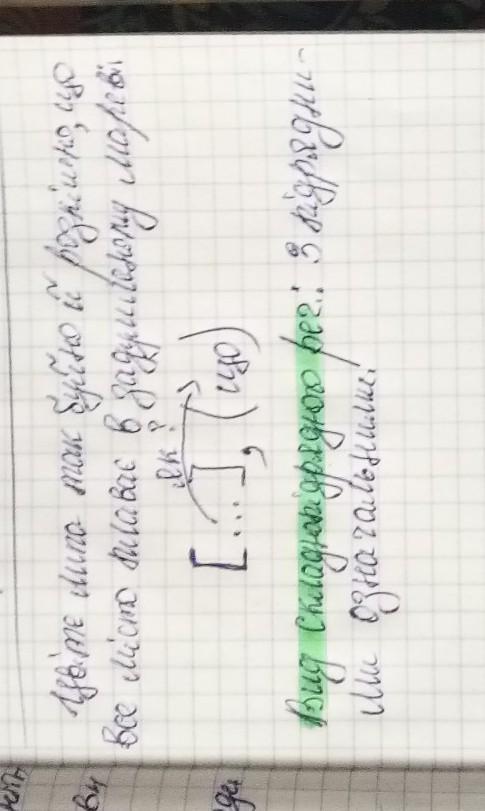 Цвіте липа так буйно й розкішно, що
все місто плаває в задумливому мареві
як?
[...], (що)
Вид складнопідрядного реч.: з підрядни-
ми означальними.